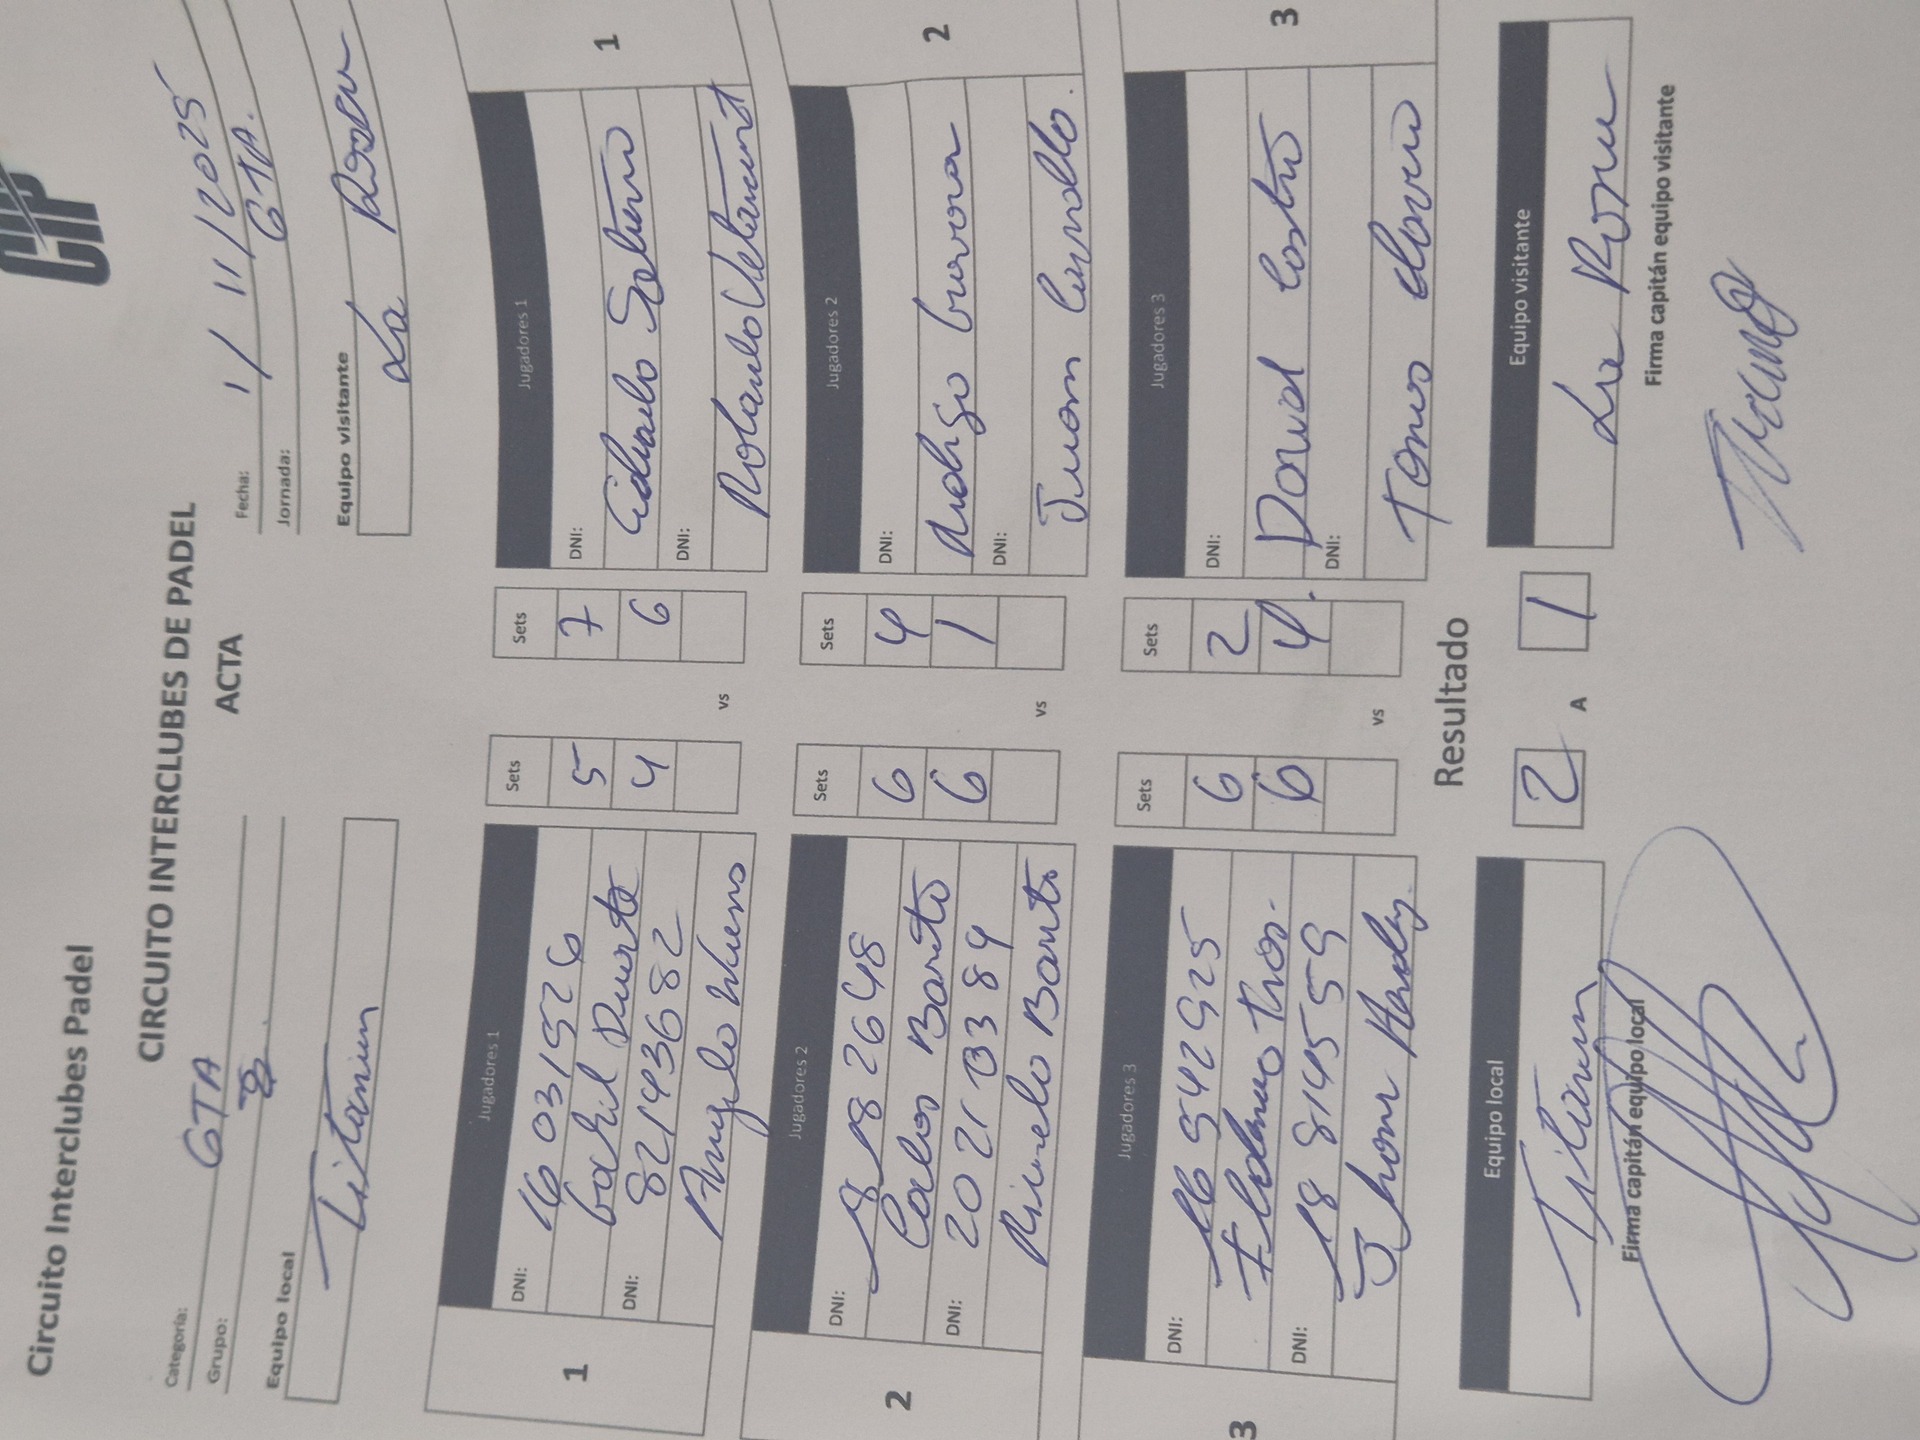 CIP
Circuito Interclubes Padel
CIRCUITO INTERCLUBES DE PADEL
ACTA
Categoría: 6TA
Grupo: 8
Fecha: 1/11/2025
Jornada: 6TA.
Equipo local
Titanium
Equipo visitante
La Rosau
1
Jugadores 1
DNI: 16031526
Gabriel Duarte
DNI: 82143682
Angelo
Sets
5
4
vs
Sets
7
6
Jugadores 1
DNI:
Eduardo
DNI:
Rolando Betancourt
1
2
Jugadores 2
DNI: 18826648
Carlos Barreto
DNI: 20210384
Barreto
Sets
6
6
vs
Sets
4
1
Jugadores 2
DNI:
Rodrigo Guevara
DNI:
Juan
2
3
Jugadores 3
DNI: 16542925
DNI: 18814559
Jhom
Sets
6
6
vs
Sets
2
4.
Jugadores 3
DNI:
David Castro
DNI:
3
Resultado
Equipo local
Titanium
Firma capitán equipo local
2
A
1
Equipo visitante
La
Firma capitán equipo visitante